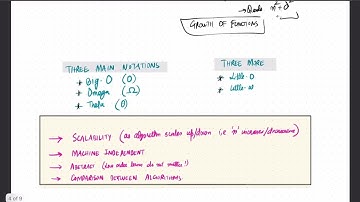 → Quad
GROWTH OF FUNCTIONS
THREE MAIN NOTATIONS
* Big-O (O)
* Omega (Ω)
* Theta (Θ)
THREE MORE
* Little-o
* Little-ω
→ SCALABILITY (as algorithm scales up/down i.e 'n' increases/decreases)
→ MACHINE INDEPENDENT
→ ABSTRACT (low order terms do not matter!)
→ COMPARISON BETWEEN ALGORITHMS
4 of 9